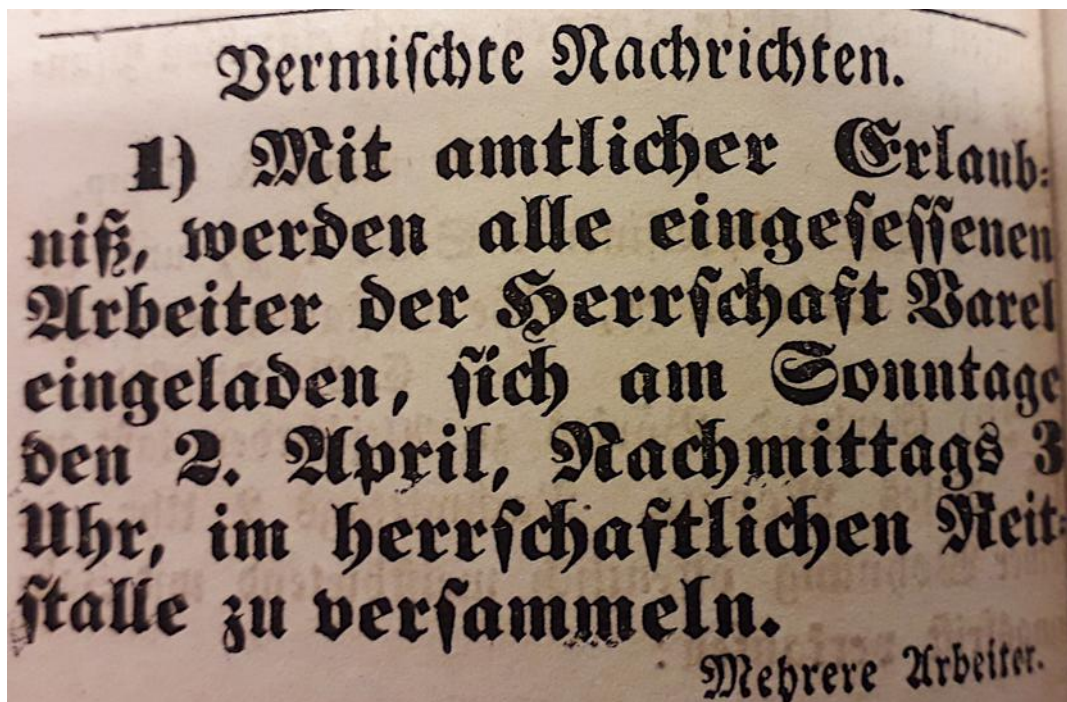 Vermischte Nachrichten.
1) Mit amtlicher Erlaub-
niß, werden alle eingesessenen
Arbeiter der Herrschaft Varel
eingeladen, sich am Sonntage
den 2. April, Nachmittags 3
Uhr, im herrschaftlichen Reit-
stalle zu versammeln.
Mehrere Arbeiter.